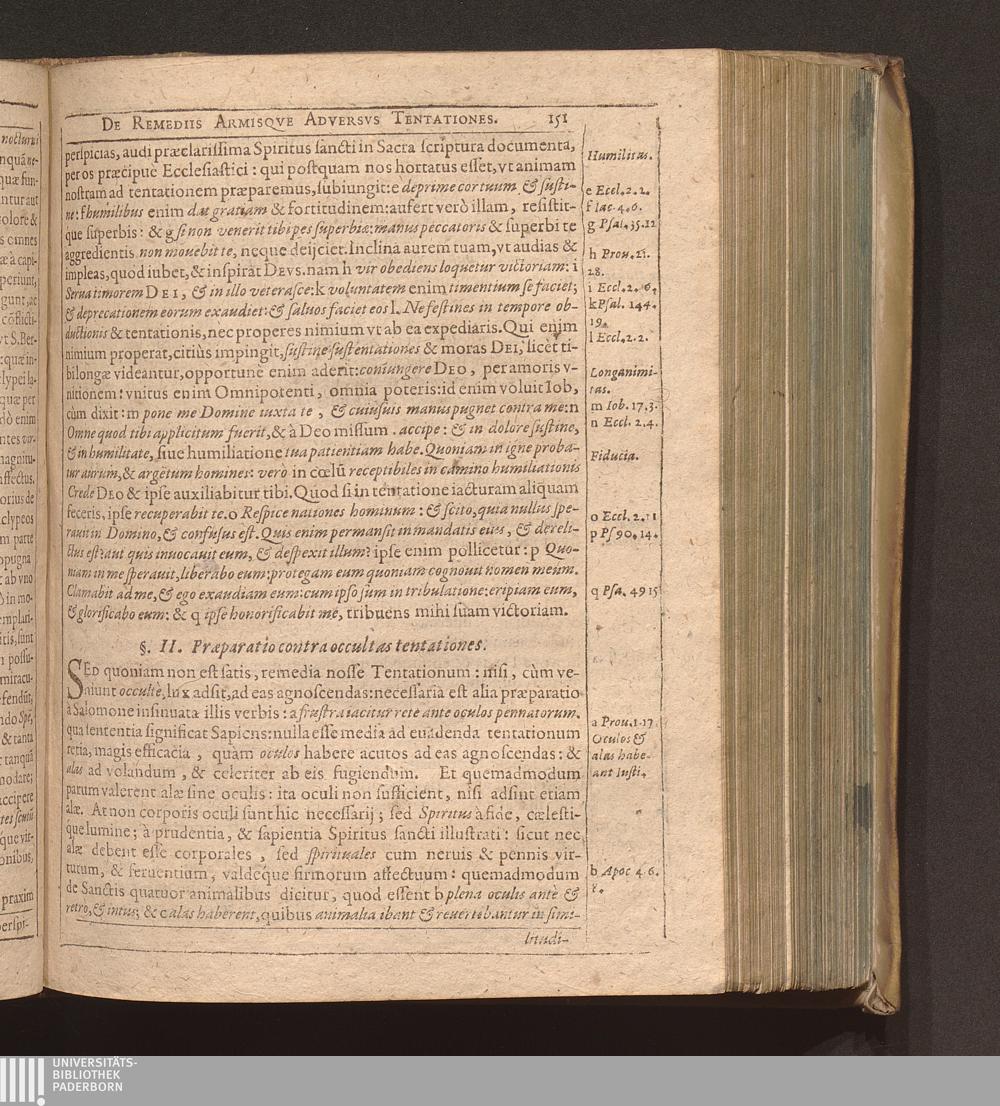 DE REMEDIIS ARMISQVE ADVERSVS TENTATIONES. 151
perſpicias, audi præclariſſima Spiritus ſancti in Sacra ſcriptura documenta,
per os præcipuè Eccleſiaſtici : qui poſtquam nos hortatus eſſet, vt animam
noſtram ad tentationem præparemus, ſubiungit: e deprime cor tuum & ſuſti-
ne: f humilibus enim dat gratiam & fortitudinem: aufert verò illam, reſiſtit-
que ſuperbis: & g ſi non venerit tibi pes ſuperbiæ: manus peccatoris & ſuperbi te
aggredientis non mouebit te, neque deijciet. Inclina aurem tuam, vt audias &
impleas, quod iubet, & inſpirat DEVS. nam h vir obediens loquetur victoriam: i
Serua timorem DEI, & in illo veteraſce: k voluntatem enim timentium ſe faciet;
& deprecationem eorum exaudiet: & ſaluos faciet eos l. Ne feſtines in tempore ob-
ductionis & tentationis, nec properes nimium vt ab ea expediaris. Qui enim
nimium properat, citiùs impingit, ſuſtine ſuſtentationes & moras DEI, licèt ti-
bi longæ videantur, opportunè enim aderit: coniungere DEO, per amoris v-
nitionem: vnitus enim Omnipotenti, omnia poteris: id enim voluit Iob,
cùm dixit: m pone me Domine iuxta te, & cuiuſuis manus pugnet contra me: n
Omne quod tibi applicitum fuerit, & à Deo miſſum. accipe: & in dolore ſuſtine,
& in humilitate, ſiue humiliatione tua patientiam habe. Quoniam in igne proba-
tur aurum, & argẽtum homines: verò in cœlũ receptibiles in camino humiliationis
Crede DEO & ipſe auxiliabitur tibi. Quod ſi in tentatione iacturam aliquam
feceris, ipſe recuperabit te. o Reſpice nationes hominum: & ſcito, quia nullus ſpe-
rauit in Domino, & confuſus eſt. Quis enim permanſit in mandatis eius, & dereli-
ctus eſt? aut quis inuocauit eum, & deſpexit illum? ipſe enim pollicetur: p Quo-
niam in me ſperauit, liberabo eum: protegam eum quoniam cognouit nomen meum.
Clamabit ad me, & ego exaudiam eum: cum ipſo ſum in tribulatione: eripiam eum,
& glorificabo eum: & q ipſe honorificabit me, tribuens mihi ſuam victoriam.
§. II. Præparatio contra occultas tentationes.
SED quoniam non eſt ſatis, remedia noſſe Tentationum: niſi, cùm ve-
niunt occultè, lux adſit, ad eas agnoſcendas: neceſſaria eſt alia præparatio
à Salomone inſinuata illis verbis: a fruſtra iacitur rete ante oculos pennatorum.
qua ſententia ſignificat Sapiens: nulla eſſe media ad euadenda tentationum
retia, magis efficacia, quàm oculos habere acutos ad eas agnoſcendas: &
alas ad volandum, & celeriter ab eis fugiendum. Et quemadmodum
parum valerent alæ ſine oculis: ita oculi non ſufficient, niſi adſint etiam
alæ. At non corporis oculi ſunt hic neceſſarij; ſed Spiritus à fide, cæleſti-
que lumine; à prudentia, & ſapientia Spiritus ſancti illuſtrati: ſicut nec
alæ debent eſſe corporales, ſed ſpirituales cum neruis & pennis vir-
tutum, & feruentium, valdeque firmorum affectuum: quemadmodum
de Sanctis quatuor animalibus dicitur, quod eſſent b plena oculis antè &
retro, & intus; & c alas haberent, quibus animalia ibant & reuertebantur in ſimi-
litudi-
Humilitas.
e Eccl. 2. 2.
f Iac. 4. 6.
g Pſal. 35. 12
h Prou. 21.
28.
i Eccl. 2. 6.
k Pſal. 144.
19.
l Eccl. 2. 2.
Longanimi-
tas.
m Iob. 17. 3.
n Eccl. 2. 4.
Fiducia.
o Eccl. 2. 11
p Pſ 90. 14.
q Pſa. 49 15
a Prou. 1. 17.
Oculos &
alas habe-
ant Iuſti.
b Apoc 4. 6.
8.
UNIVERSITÄTS-
BIBLIOTHEK
PADERBORN